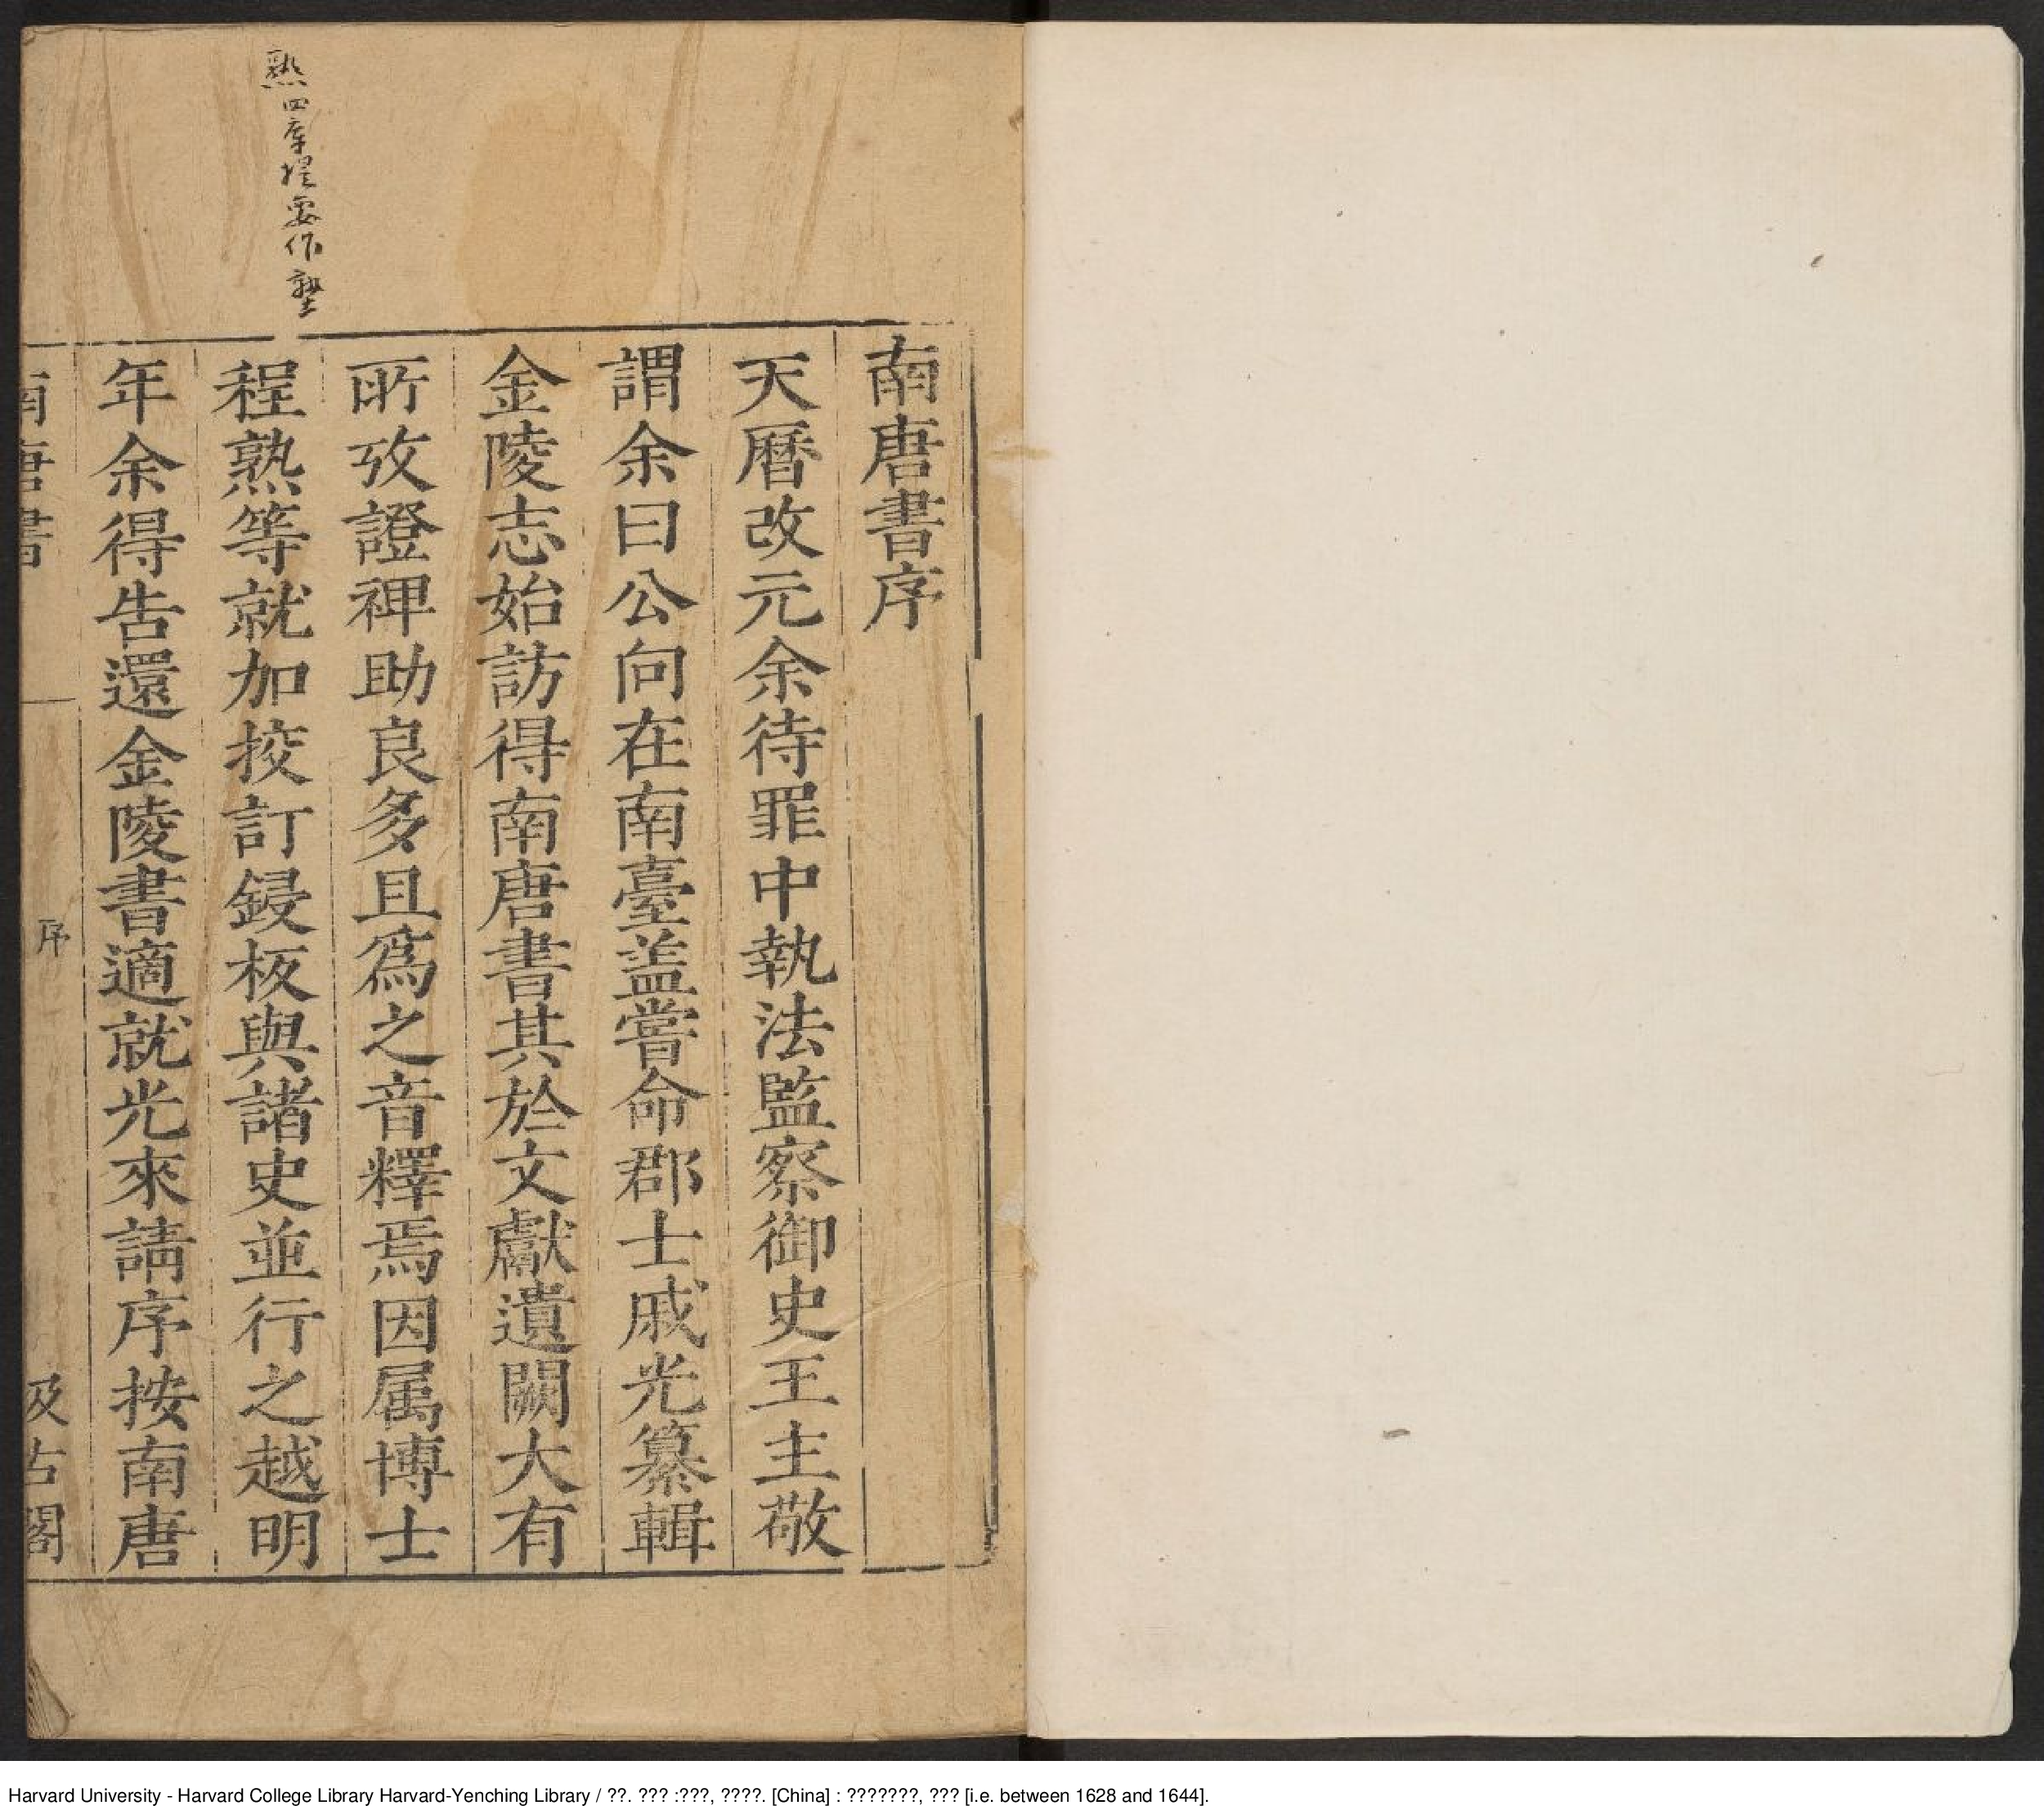 南唐書序
天曆改元余待罪中執法監察御史王主敬
謂余曰公向在南臺葢嘗命郡士戚光纂輯
金陵志始訪得南唐書其於文獻遺闕大有
所攷證裨助良多且爲之音釋焉因属博士
程熟等就加挍訂鋟板與諸史並行之越明
年余得告還金陵書適就光來請序按南唐
熟四庫提要作塾
南唐書
序
汲古閣
Harvard University - Harvard College Library Harvard-Yenching Library / ??. ??? :???, ????. [China] : ???????, ??? [i.e. between 1628 and 1644].